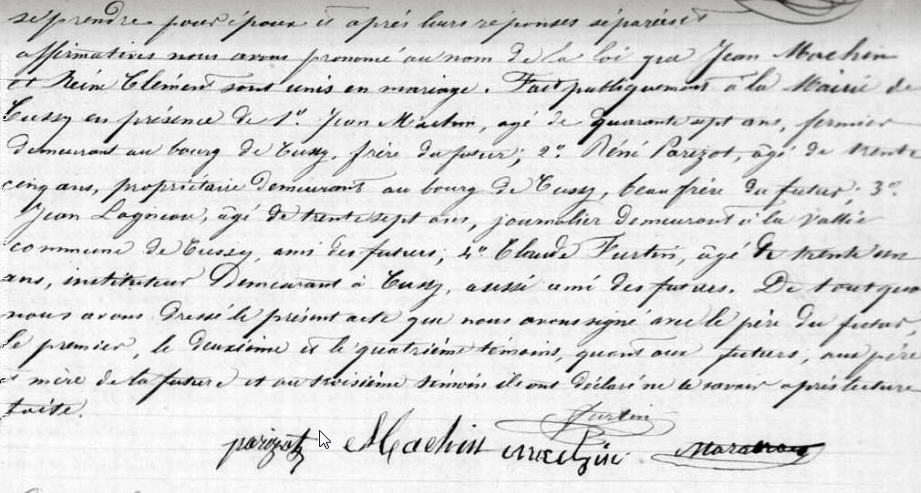 se prendre pour époux et après leurs réponses séparées et
affirmatives nous avons prononcé au nom de la loi que Jean Machin
et Reine Clément sont unis en mariage. Fait publiquement à la Mairie de
Cussy en présence de 1º Jean Machin, agé de quarante sept ans, fermier
demeurant au bourg de Cussy, frère du futur; 2º René Parizot, âgé de trente
cinq ans, propriétaire demeurant au bourg de Cussy, beau frère du futur; 3º
Jean Lagneau, âgé de trente sept ans, journalier demeurant à la Vallée
commune de Cussy, ami des futurs; 4º Claude Furtin, âgé de trente un
ans, instituteur Demeurant à Cussy, aussi ami des futurs. De tout quoi
nous avons dressé le présent acte que nous avons signé avec le père du futur
le premier, le deuxième et le quatrième témoins, quant aux futurs, aux père
et mère de la future et au troisième témoin ils ont déclaré ne le savoir après lecture
faite.
Furtin
parizot Machin machin